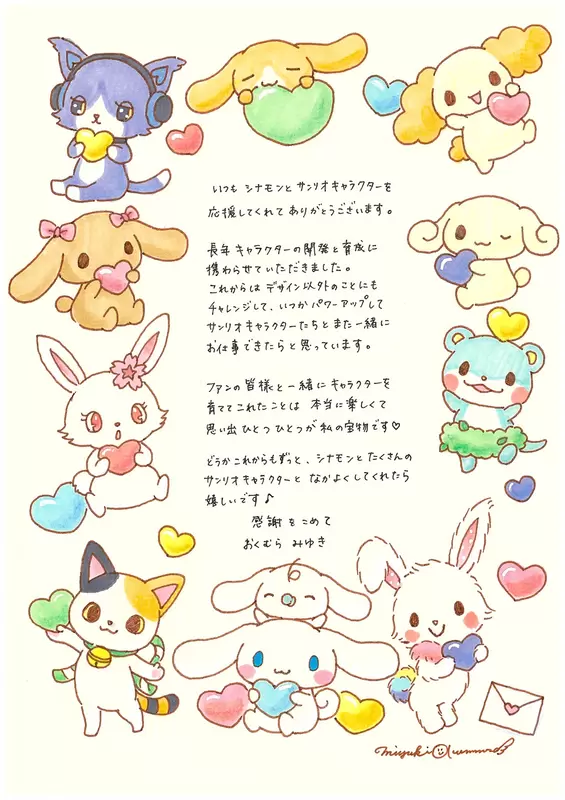 いつも シナモンと サンリオキャラクターを
応援してくれて ありがとうございます。
長年 キャラクターの 開発と 育成に
携わらせていただきました。
これからは デザイン以外の ことにも
チャレンジして、いつか パワーアップして
サンリオキャラクターたちと また 一緒に
お仕事できたらと 思っています。
ファンの 皆様と 一緒に キャラクターを
育ててこれたことは 本当に 楽しくて
思い出 ひとつ ひとつが 私の 宝物です♡
どうか これからも ずっと、シナモンと たくさんの
サンリオキャラクターと なかよくしてくれたら
嬉しいです♪
感謝 を こめて
おくむら みゆき
miyuki